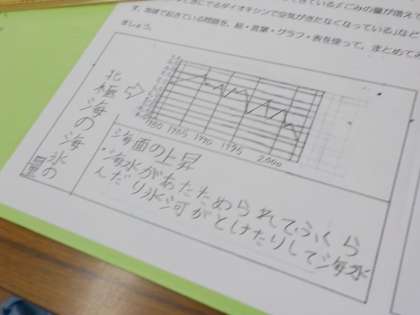 きている/ごみの量が増え
ダイオキシンで空気がきたなくなっている」など
す。地球で起きている問題を、絵・言葉・グラフ・表を使って、まとめてみ
ましょう。
北極海の海氷の
1985
1990
1995
2,000
海面の上昇
・海水があたためられてふくら
んだり氷河がとけたりして海水